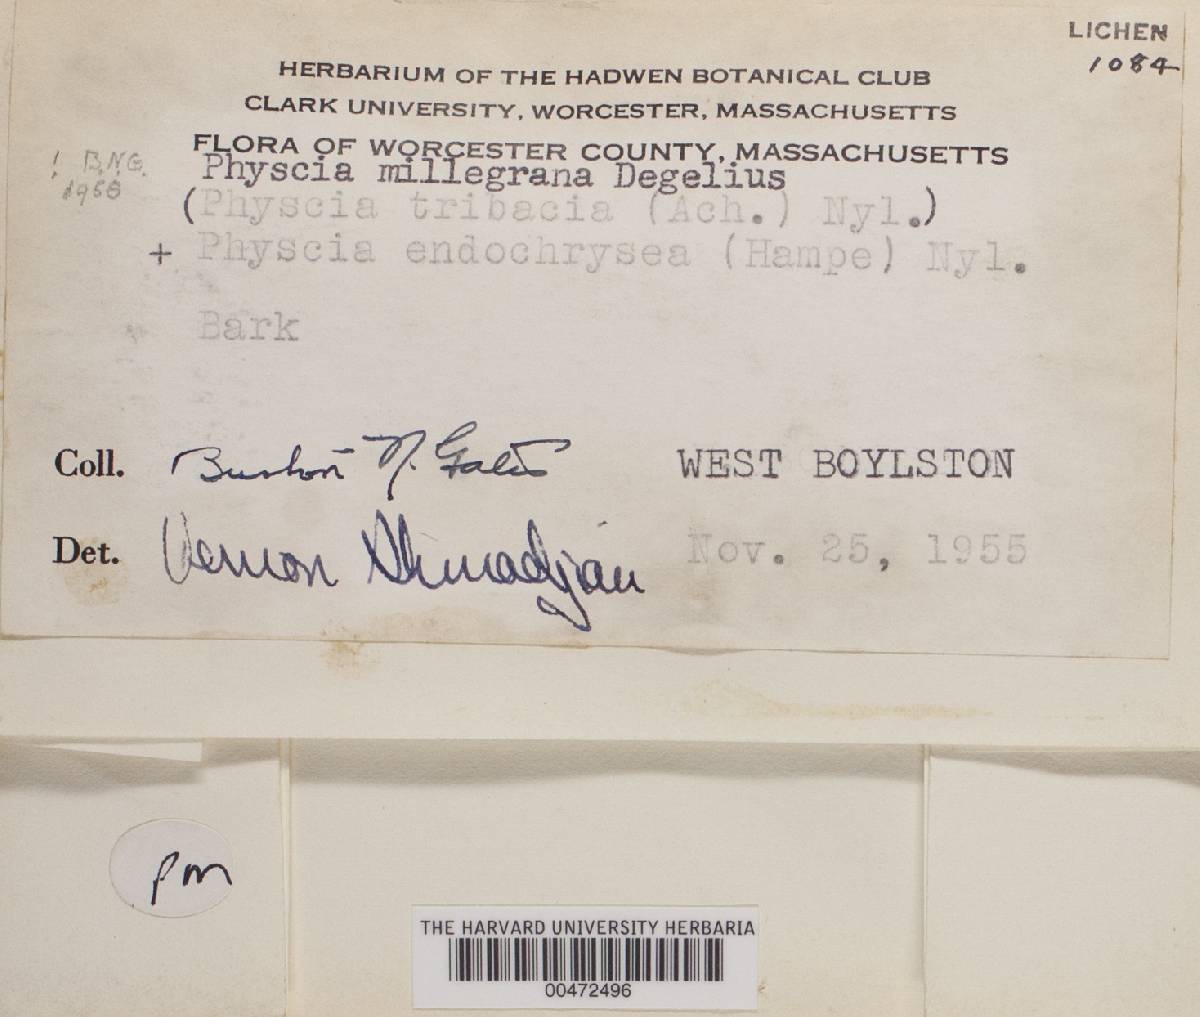 LICHEN
1084
HERBARIUM OF THE HADWEN BOTANICAL CLUB
CLARK UNIVERSITY, WORCESTER, MASSACHUSETTS
FLORA OF WORCESTER COUNTY, MASSACHUSETTS
! B.N.G.
1958
Physcia millegrana Degelius
(Physcia tribacia (Ach.) Nyl.)
+ Physcia endochrysea (Hampe) Nyl.
Bark
Coll. Burton N. Gates WEST BOYLSTON
Det. Vernon Ahmadjian Nov. 25, 1955
pm
THE HARVARD UNIVERSITY HERBARIA
00472496